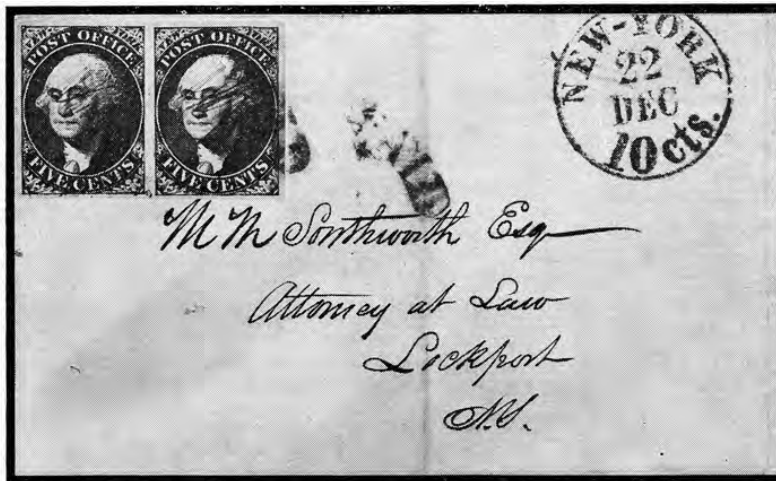 POST OFFICE
FIVE CENTS
POST OFFICE
FIVE CENTS
NEW-YORK
22
DEC
10 cts.
M M Southworth Esq
Attorney at Law
Lockport
N.Y.